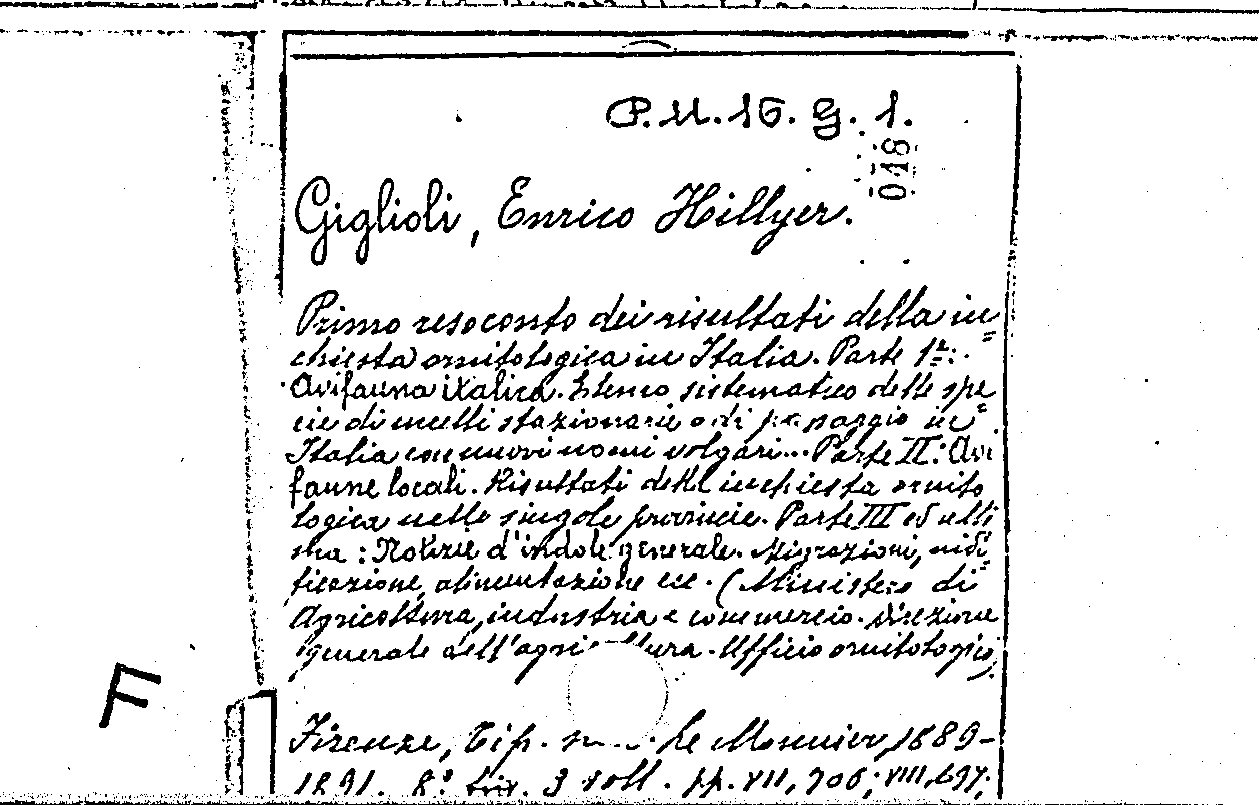 P. U. 16. G. 1.
048
Giglioli, Enrico Hillyer.
Primo resoconto dei risultati della in=
chiesta ornitologica in Italia. Parte 1ª:
Avifauna italica. Elenco sistematico delle spe=
cie di uccelli stazionarie o di passaggio in
Italia con nuovi nomi volgari... Parte II: Avi
faune locali. Risultati della inchiesta ornito
logica nelle singole provincie. Parte III ed ulti
ma: Notizie d'indole generale. Migrazioni, nidi=
ficazione, alimentazione ecc. (Ministero di
Agricoltura, industria e commercio. Direzione
generale dell'agricoltura. Ufficio ornitologico)
F
Firenze, Tip. Le Monnier, 1889-
1891. 8º 3 voll. pp. VII, 706; VIII, 697;